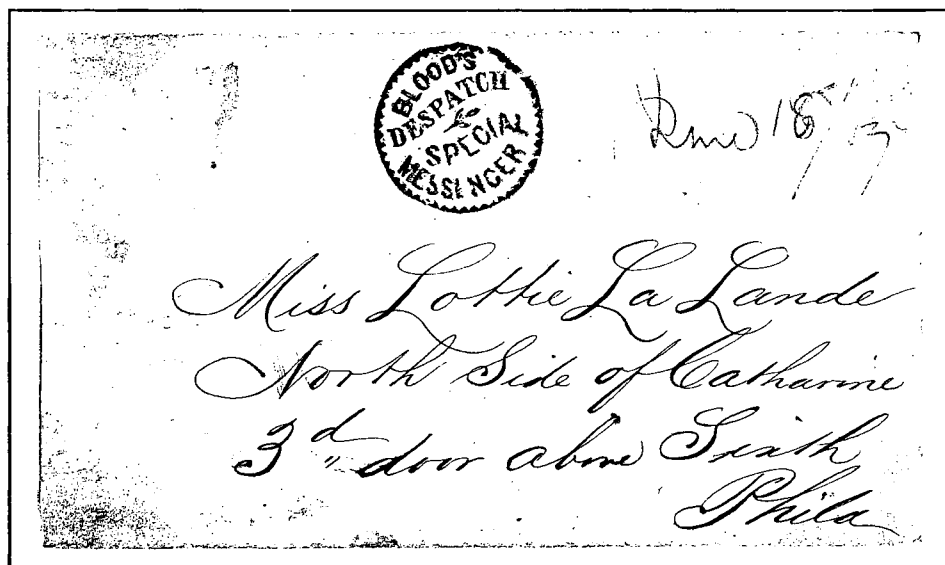 BLOOD'S
DESPATCH
SPECIAL
MESSENGER
June 18
Miss Lottie La Lande
North Side of Catharine
3d " door above Sixth
Phila